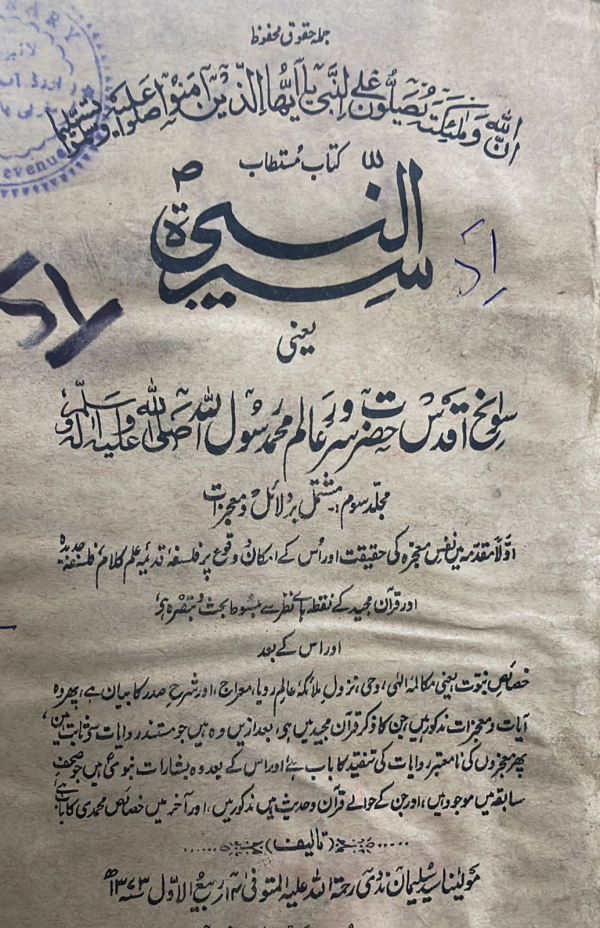 جملہ حقوق محفوظ
ان اللہ وملٰئکتہ یصلون علی النبی یا ایھا الذین اٰمنوا صلوا علیہ وسلموا تسلیما
کتاب مُستطاب
سیرۃ النبی
یعنی
سوانح اقدس حضرت سرورِ عالم محمد رسول اللہ صلی اللہ علیہ واٰلہ وسلم
مجلد سوم: مشتمل بر دلائل و معجزات
اوّلاً مقدمہ میں نفس معجزہ کی حقیقت اور اُس کے امکان و وقوع پر فلسفۂ قدیمہ علم کلام، فلسفۂ جدیدہ
اور قرآن مجید کے نقطہ ہائے نظر سے مبسوط بحث و تبصرہ ہی،
اور اس کے بعد
خصائصِ نبوت یعنی مکالمۂ الٰہی، وحی، نزولِ ملائکہ عالمِ رویا، معراج، اور شرحِ صدر کا بیان ہے، پھر وہ
آیات و معجزات مذکور ہیں جن کا ذکر قرآن مجید میں ہی، بعد ازیں وہ ہیں جو مستند روایات سے ثابت ہیں،
پھر معجزوں کی نامعتبر روایات کی تنقید کا باب ہے اور اس کے بعد وہ بشارات نبوی ہیں جو صحفِ
سابقہ میں موجود ہیں، اور جن کے حوالے قرآن و حدیث میں مذکور ہیں، اور آخر میں خصائص محمدی کا باب ہے
(تالیف)
مولینا سید سلیمان ندوی رحمۃ اللہ علیہ المتوفی ۱۴ ربیع الاوّل سنہ ۱۳۷۳ھ
evenue